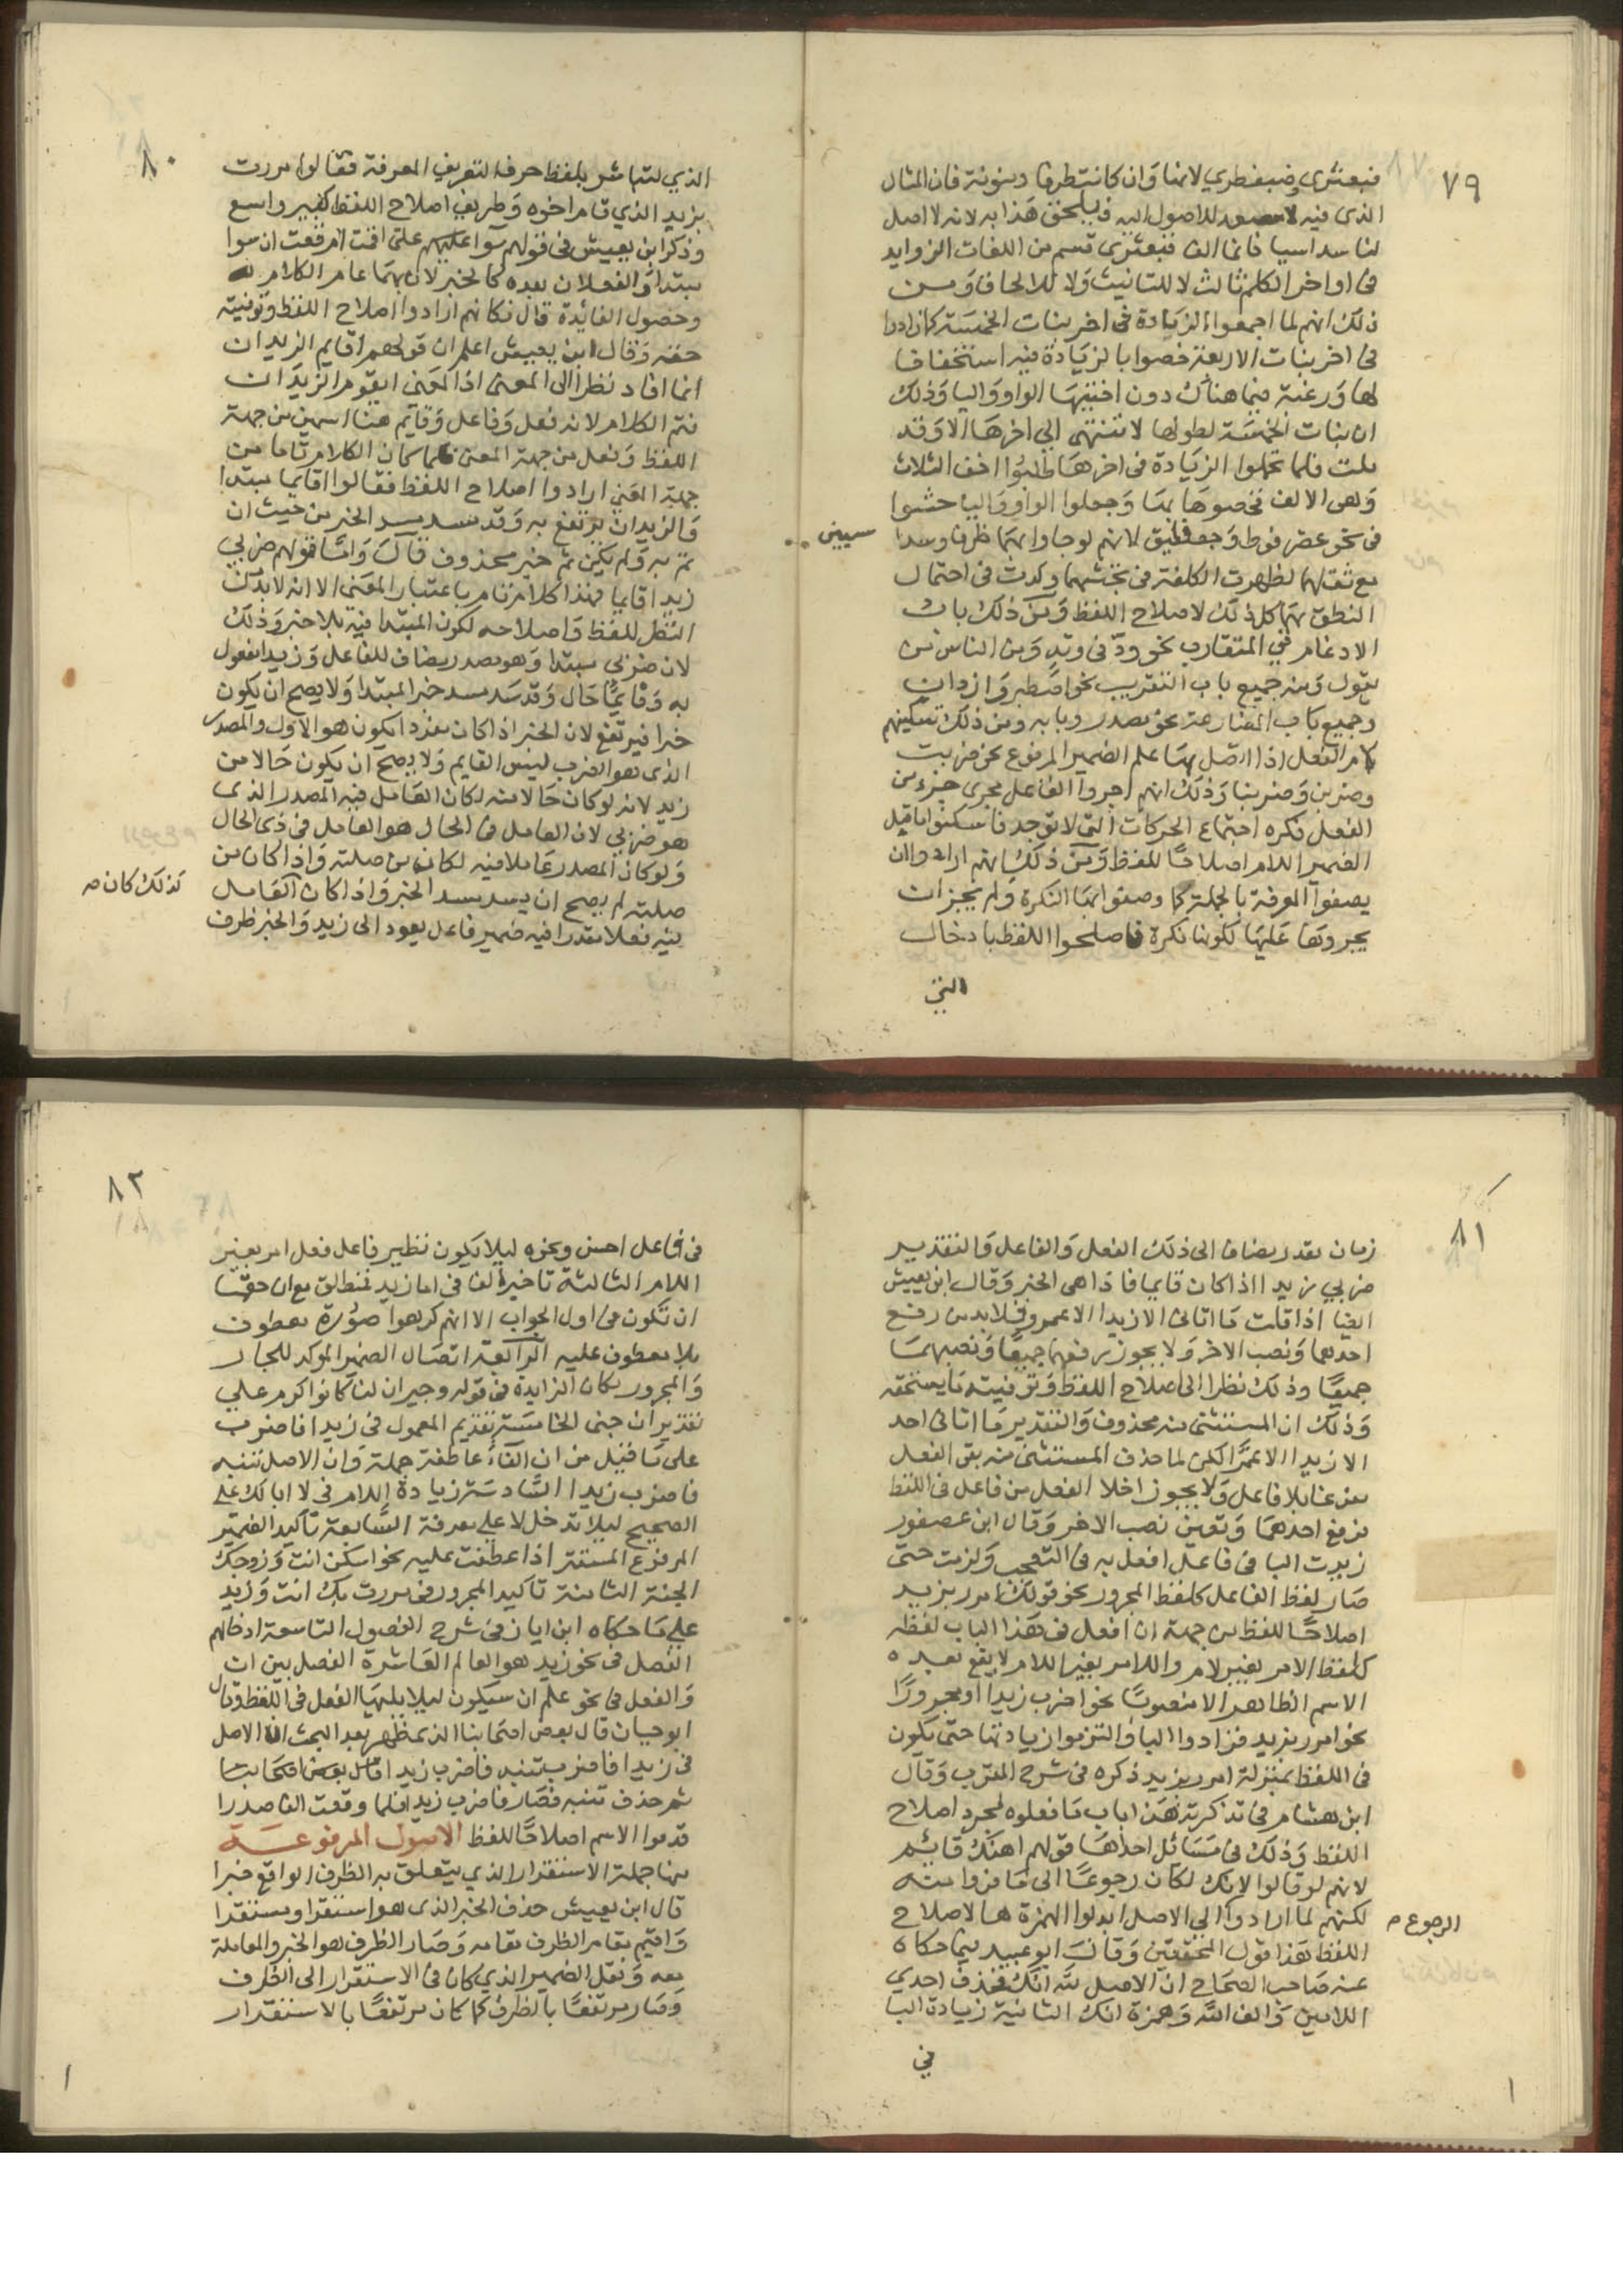 ٧٩
قبعثرى وضبغطري لانها وان كانت طرفا ومنونة فان المثال
الذى فيه لا مصعد للاصول اليه فيلحق هذا به لانه لا اصل
لنا سداسيا فانما الف قبعثرى قسم من اللغات الزوايد
فى اواخر الكلم ثالث لا للتانيث ولا للالحاق ومن
ذلك انهم لما اجمعوا الزيادة فى اخر بنات الخمسة كما زادوا
فى اخر بنات الاربعة خصوا بالزيادة فيه استخفافا
لها ورغبة فيما هناك دون اختيها الواو واليا وذلك
ان بنات الخمسة لطولها لا تنتهى الى اخرها الا وقد
ملت فلما تحملوا الزيادة فى اخرها طلبوا اخف الثلاث
وهى الالف فخصوها بها وجعلوا الواو واليا حشوا
فى نحو عضرفوط وجعفليق لانهم لو جاوا بهما طرفا وسدا
سيين
مع ثقلهما لظهرت الكلفة فى تجشمهما وكدت فى احتمال
النطق بهما كل ذلك لاصلاح اللفظ ومن ذلك باب
الادغام في المتقارب نحو ودّ فى وتد ومن الناس من
يقول ومنه جميع باب التقريب نحو اصطبر وازدان
وجميع باب المضارعة نحو مصدر وبابه ومن ذلك تسكينهم
لام الفعل اذا اتصل بها علم الضمير المرفوع نحو ضربت
وضربن وضربنا وذلك انهم اجروا الفاعل مجرى جزء من
الفعل فكره اجتماع الحركات التى لا توجد فاسكنوا ما قبل
الضمير اللام اصلاحًا للفظ ومن ذلك انهم ارادوا ان
يصفوا المعرفة بالجملة كما وصفوا بها النكرة ولم يجز ان
يجروها عليها لكونها نكرة فاصلحوا اللفظ بادخال
التي
٨٠
الذي لتباشر بلفظ حرف التعريف المعرفة فقالوا مررت
بزيد الذي قام اخوه وطريق اصلاح اللفظ كثير واسع
وذكر ابن يعيش فى قولهم سوا عليهم على اقمت ام قعدت ان سوا
مبتدا والفعلان بعده كالخبر لان بهما تمام الكلام
وحصول الفائدة قال فكانهم ارادوا اصلاح اللفظ وتوفيته
حقه وقال ابن يعيش اعلم ان قولهم اقايم الزيدان
انما افاد نظرا الى المعنى اذ المعنى ايقوم الزيدان
فتم الكلام لانه فعل وفاعل وقايم هنا اسم من جهة
اللفظ وفعل من جهة المعنى فلما كان الكلام تاما من
جهة المعنى ارادوا اصلاح اللفظ فقالوا اقايم مبتدا
والزيدان يرتفع به وقد سد مسد الخبر من حيث ان
تم به ولم يكن ثم خبر محذوف قال واما قولهم ضربي
زيدا قايما فهذا كلام تام باعتبار المعنى الا انه لا بد من
النظر للفظ واصلاحه لكون المبتدا فيه بلا خبر وذلك
لان ضربي مبتدا وهو مصدر مضاف للفاعل وزيدا مفعول
به وقايمًا حال وقد سد مسد خبر المبتدا ولا يصح ان يكون
خبرا فيرتفع لان الخبر اذا كان مفردا يكون هو الاول والمصدر
الذى هو الضرب ليس القايم ولا يصح ان يكون حالا من
زيد لانه لو كان حالا منه لكان العامل فيه المصدر الذى
هو ضربي لان العامل فى الحال هو العامل فى ذى الحال
ولو كان المصدر عاملا فيه لكان من صلته واذا كان من
كذلك كان م
صلته لم يصح ان يسد مسد الخبر واذا كان العامل
فيه فعلا مقدرا فيه ضمير فاعل يعود الى زيد والخبر ظرف
٨١
زمان مقدر مضاف الى ذلك الفعل والفاعل والتقدير
ضربي زيدا اذا كان قايما فاذا هى الخبر وقال ابن يعيش
ايضا اذا قلت ما اتانى الا زيدا الا عمرو فلا بد من رفع
احدهما ونصب الاخر ولا يجوز رفعهما جميعًا ونصبهما
جميعًا وذلك نظرا الى اصلاح اللفظ وتوفيته ما يستحقه
وذلك ان المستثنى منه محذوف والتقدير ما اتانى احد
الا زيدا الا عمرًا لكن لما حذف المستثنى منه بقى الفعل
مفرغا بلا فاعل ولا يجوز اخلا الفعل من فاعل فى اللفظ
فرفع احدهما وتعين نصب الاخر وقال ابن عصفور
زيدت البا فى فاعل افعل به فى التعجب ولزمت حتى
صار لفظ الفاعل كلفظ المجرور نحو قولك امرر بزيد
اصلاحًا للفظ من جهة ان افعل فى هذا الباب لفظه
كلفظ الامر بغير لام واللامر بغير اللام لا يقع بعده
الاسم الظاهر الا منصوبًا نحو اضرب زيدا او مجرورًا
نحو امرر بزيد فزادوا البا والتزموا زيادتها حتى يكون
فى اللفظ بمنزلة امرر بزيد ذكره فى شرح المقرب وقال
ابن هشام فى تذكرته هذا باب ما فعلوه لمجرد اصلاح
اللفظ وذلك فى مسائل احداها قولهم لهنك قائم
لانهم لو قالوا لانك لكان رجوعًا الى ما فروا منه
لكنهم لما ارادوا الى الاصل ابدلوا الهمزة هـا لاصلاح
الرجوع م
اللفظ هذا قول المحققين وقال ابو عبيد فيما حكاه
عنه صاحب الصحاح ان الاصل لله انك فحذف احدى
اللامين والف الله وهمزة انك الثانية زيادة البا
في
٨٢
فى فاعل احسن ونحوه ليلا يكون نظير فاعل فعل امر بغير
اللام الثالثة تاخير الفا فى اما زيد فمنطلق مع ان حقها
ان تكون فى اول الجواب الا انهم كرهوا صورة معطوف
بلا معطوف عليه الرابعة اتصال الضمير الموكد للجار
والمجرور بكان الزايدة فى قوله وجيران لنا كانوا كرم على
تقدير ابن جنى الخامسة تقديم المعمول فى زيدا فاضرب
على ما قيل من ان الفاء عاطفة جملة وان الاصل تنبه
فاضرب زيدا السادسة زيادة اللام فى لا ابا لك على
الصحيح ليلا تدخل لا على معرفة السابعة تاكيد الضمير
المرفوع المستتر اذا عطفت عليه نحو اسكن انت وزوجك
الجنة الثامنة تاكيد المجرور فى مررت بك انت وزيد
على ما حكاه ابن اياز فى شرح الفصول التاسعة ادخالهم
الفصل فى نحو زيد هو العالم العاشرة الفصل بين ان
والفعل فى نحو علم ان سيكون ليلا يليها الفعل فى اللفظ وقال
ابو حيان قال بعض اصحابنا الذى يظهر بعد البحث ان الاصل
فى زيدا فاضرب تنبه فاضرب زيدا
ثم حذف تنبه فصار فاضرب زيدا فلما وقعت الفا صدرا
قدموا الاسم اصلاحًا للفظ الاصول المرفوعة
منها جملة الاستقرار الذي يتعلق به الظرف الواقع خبرا
قال ابن يعيش حذف الخبر الذى هو استقر او مستقرا
واقيم مقام الظرف مقامه وصار الظرف هو الخبر والمعاملة
معه ونقل الضمير الذي كان فى الاستقرار الى الظرف
وصار مرتفعًا بالظرف كما كان مرتفعًا بالاستقرار